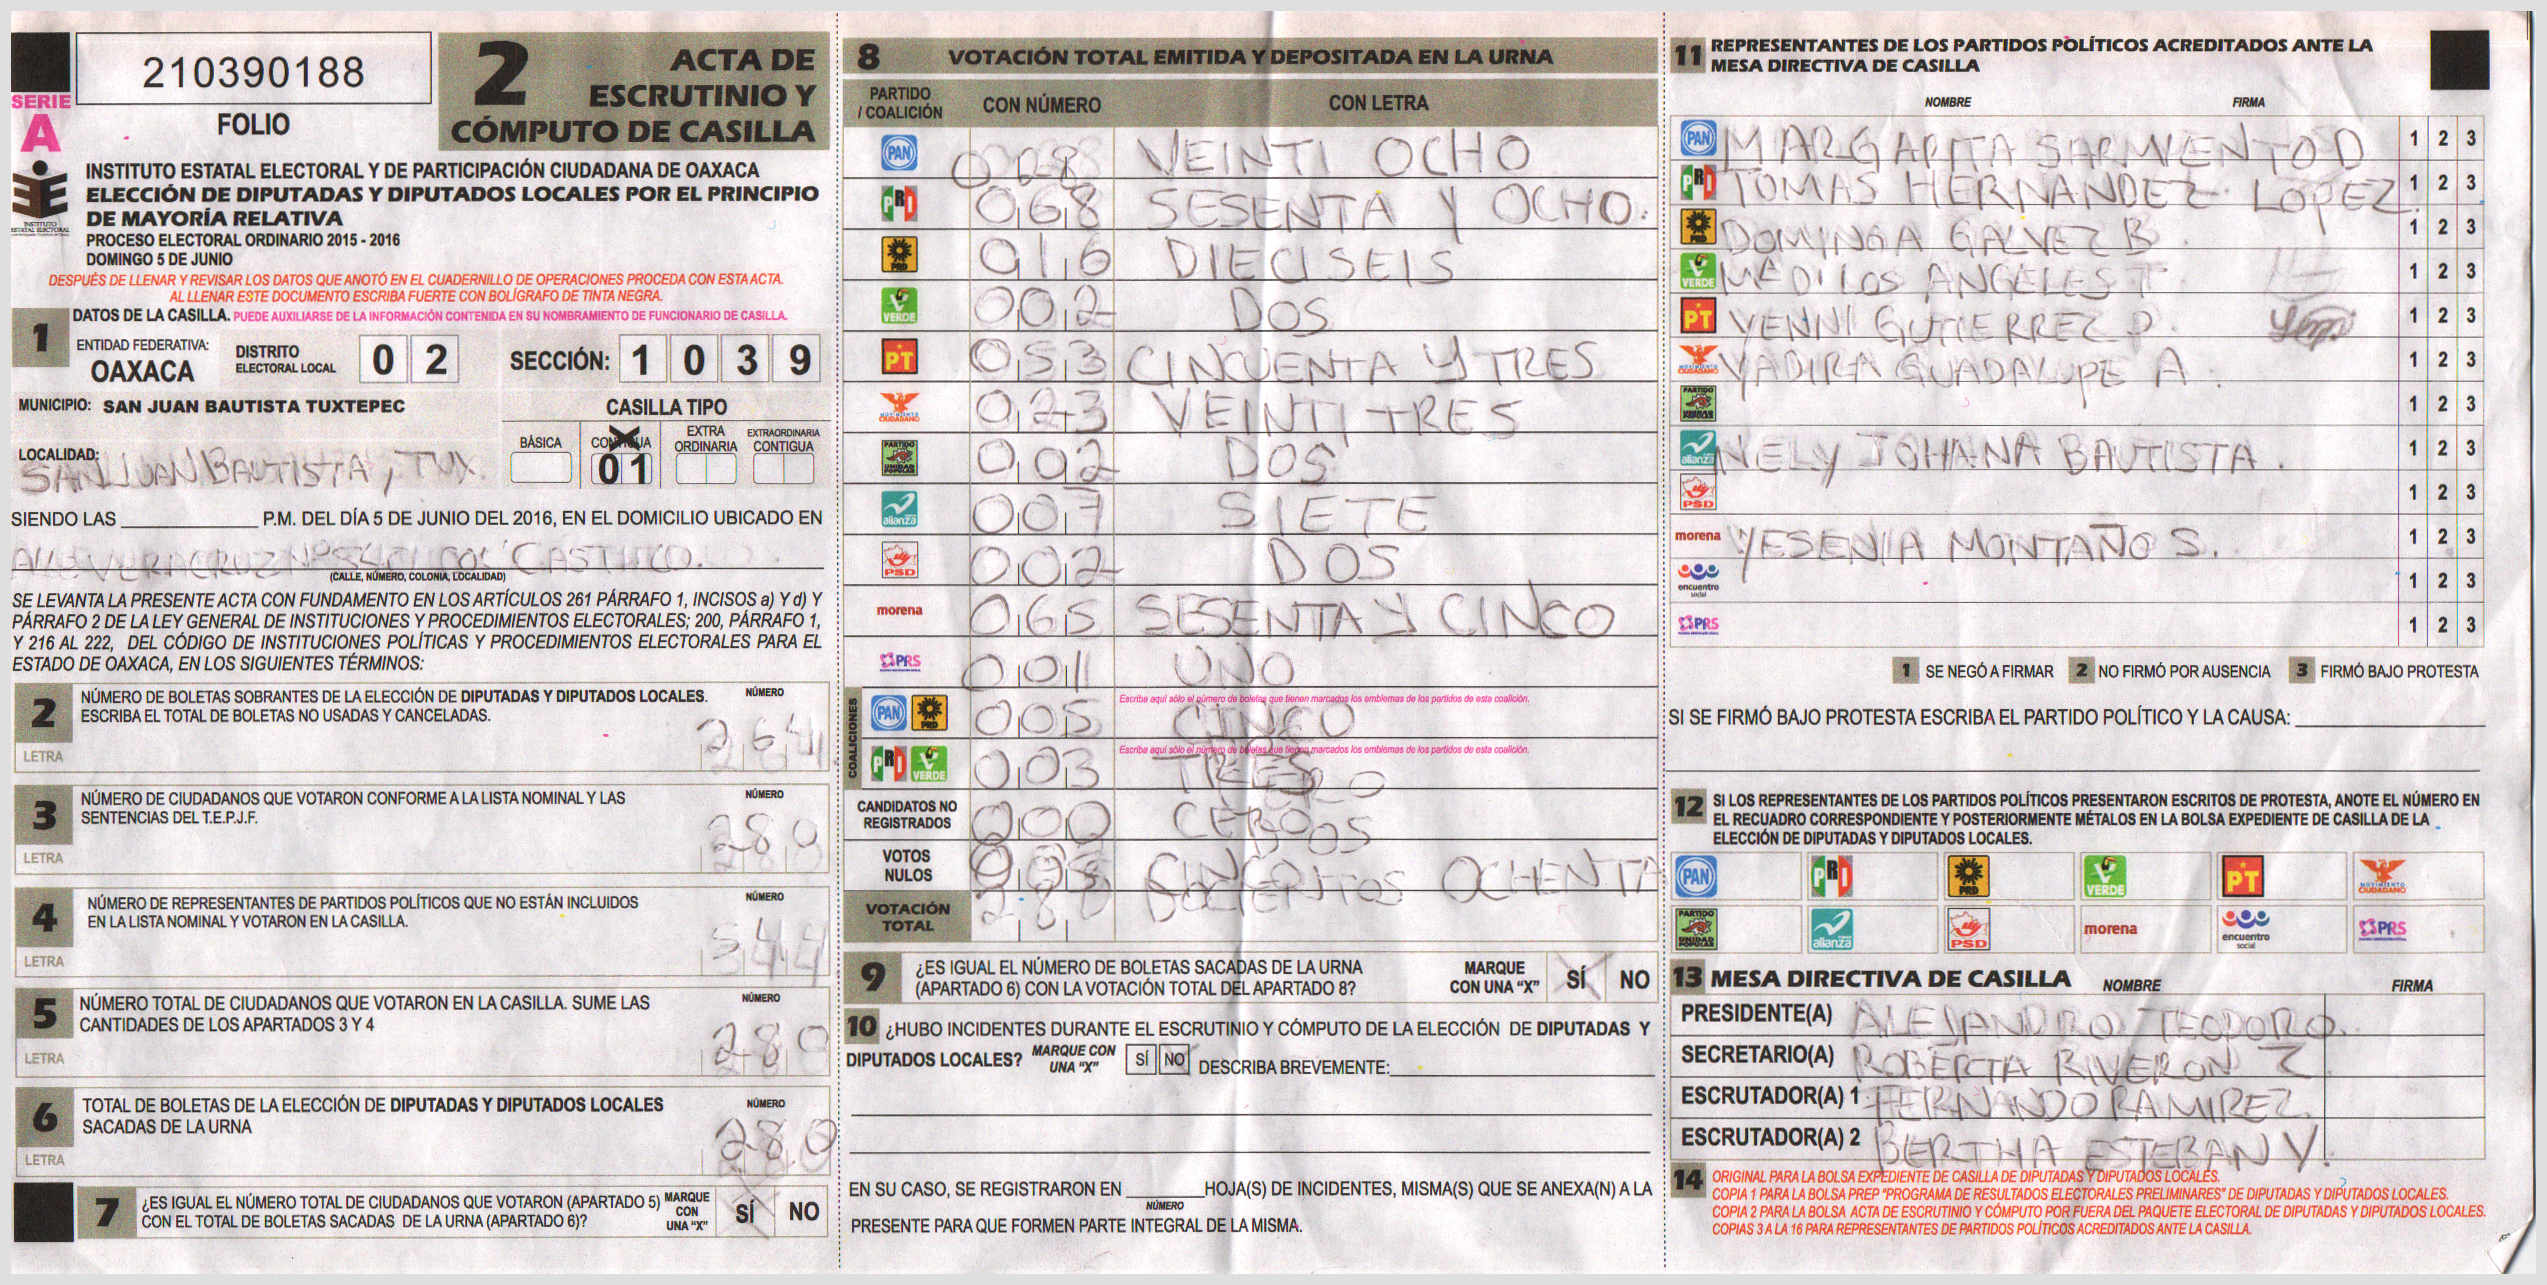 210390188
FOLIO
SERIE
A
2
ACTA DE
ESCRUTINIO Y
CÓMPUTO DE CASILLA
INSTITUTO ESTATAL ELECTORAL Y DE PARTICIPACIÓN CIUDADANA DE OAXACA
ELECCIÓN DE DIPUTADAS Y DIPUTADOS LOCALES POR EL PRINCIPIO
DE MAYORÍA RELATIVA
PROCESO ELECTORAL ORDINARIO 2015 - 2016
DOMINGO 5 DE JUNIO
DESPUÉS DE LLENAR Y REVISAR LOS DATOS QUE ANOTÓ EN EL CUADERNILLO DE OPERACIONES PROCEDA CON ESTA ACTA.
AL LLENAR ESTE DOCUMENTO ESCRIBA FUERTE CON BOLÍGRAFO DE TINTA NEGRA.
1 DATOS DE LA CASILLA. PUEDE AUXILIARSE DE LA INFORMACIÓN CONTENIDA EN SU NOMBRAMIENTO DE FUNCIONARIO DE CASILLA.
ENTIDAD FEDERATIVA: OAXACA
DISTRITO ELECTORAL LOCAL 0 2
SECCIÓN: 1 0 3 9
MUNICIPIO: SAN JUAN BAUTISTA TUXTEPEC
CASILLA TIPO
BÁSICA CONTIGUA 01 EXTRA ORDINARIA EXTRAORDINARIA CONTIGUA
LOCALIDAD: SAN JUAN BAUTISTA, TUX.
SIENDO LAS P.M. DEL DÍA 5 DE JUNIO DEL 2016, EN EL DOMICILIO UBICADO EN
VERACRUZ CASTILLO.
(CALLE, NÚMERO, COLONIA, LOCALIDAD)
SE LEVANTA LA PRESENTE ACTA CON FUNDAMENTO EN LOS ARTÍCULOS 261 PÁRRAFO 1, INCISOS a) Y d) Y
PÁRRAFO 2 DE LA LEY GENERAL DE INSTITUCIONES Y PROCEDIMIENTOS ELECTORALES; 200, PÁRRAFO 1,
Y 216 AL 222, DEL CÓDIGO DE INSTITUCIONES POLÍTICAS Y PROCEDIMIENTOS ELECTORALES PARA EL
ESTADO DE OAXACA, EN LOS SIGUIENTES TÉRMINOS:
2 NÚMERO DE BOLETAS SOBRANTES DE LA ELECCIÓN DE DIPUTADAS Y DIPUTADOS LOCALES. NÚMERO
ESCRIBA EL TOTAL DE BOLETAS NO USADAS Y CANCELADAS. 264
LETRA
3 NÚMERO DE CIUDADANOS QUE VOTARON CONFORME A LA LISTA NOMINAL Y LAS NÚMERO
SENTENCIAS DEL T.E.P.J.F. 280
LETRA
4 NÚMERO DE REPRESENTANTES DE PARTIDOS POLÍTICOS QUE NO ESTÁN INCLUIDOS NÚMERO
EN LA LISTA NOMINAL Y VOTARON EN LA CASILLA. 544
LETRA
5 NÚMERO TOTAL DE CIUDADANOS QUE VOTARON EN LA CASILLA. SUME LAS NÚMERO
CANTIDADES DE LOS APARTADOS 3 Y 4 280
LETRA
6 TOTAL DE BOLETAS DE LA ELECCIÓN DE DIPUTADAS Y DIPUTADOS LOCALES NÚMERO
SACADAS DE LA URNA 280
LETRA
7 ¿ES IGUAL EL NÚMERO TOTAL DE CIUDADANOS QUE VOTARON (APARTADO 5) MARQUE CON UNA "X" SÍ NO
CON EL TOTAL DE BOLETAS SACADAS DE LA URNA (APARTADO 6)?
8 VOTACIÓN TOTAL EMITIDA Y DEPOSITADA EN LA URNA
PARTIDO / COALICIÓN CON NÚMERO CON LETRA
PAN VEINTI OCHO
PRI 068 SESENTA Y OCHO.
PRD 016 DIECISEIS
VERDE 002 DOS
PT 053 CINCUENTA Y TRES
MOVIMIENTO CIUDADANO 023 VEINTI TRES
PARTIDO UNIDAD POPULAR 002 DOS
alianza 007 SIETE
PSD 002 DOS
morena 065 SESENTA Y CINCO
PRS 001 UNO
COALICIONES
Escriba aquí sólo el número de boletas que tienen marcados los emblemas de los partidos de esta coalición.
PAN PRD 005 CINCO
Escriba aquí sólo el número de boletas que tienen marcados los emblemas de los partidos de esta coalición.
PRI VERDE 003 TRES
CANDIDATOS NO REGISTRADOS 000 CERO
VOTOS NULOS
VOTACIÓN TOTAL 280 DOCIENTOS OCHENTA
9 ¿ES IGUAL EL NÚMERO DE BOLETAS SACADAS DE LA URNA MARQUE CON UNA "X" SÍ NO
(APARTADO 6) CON LA VOTACIÓN TOTAL DEL APARTADO 8?
10 ¿HUBO INCIDENTES DURANTE EL ESCRUTINIO Y CÓMPUTO DE LA ELECCIÓN DE DIPUTADAS Y
DIPUTADOS LOCALES? MARQUE CON UNA "X" SÍ NO DESCRIBA BREVEMENTE:
EN SU CASO, SE REGISTRARON EN HOJA(S) DE INCIDENTES, MISMA(S) QUE SE ANEXA(N) A LA
NÚMERO
PRESENTE PARA QUE FORMEN PARTE INTEGRAL DE LA MISMA.
11 REPRESENTANTES DE LOS PARTIDOS POLÍTICOS ACREDITADOS ANTE LA
MESA DIRECTIVA DE CASILLA
NOMBRE FIRMA
PAN MARGARITA SARMIENTO D 1 2 3
PRI TOMAS HERNANDEZ LOPEZ 1 2 3
PRD DOMINGA GALVEZ B. 1 2 3
VERDE LOS ANGELES T 1 2 3
PT YENNI GUTIERREZ P. 1 2 3
MOVIMIENTO CIUDADANO YADIRA GUADALUPE A. 1 2 3
PARTIDO UNIDAD POPULAR 1 2 3
alianza NELY JOHANA BAUTISTA. 1 2 3
PSD 1 2 3
morena YESENIA MONTAÑO S. 1 2 3
encuentro social 1 2 3
PRS 1 2 3
1 SE NEGÓ A FIRMAR 2 NO FIRMÓ POR AUSENCIA 3 FIRMÓ BAJO PROTESTA
SI SE FIRMÓ BAJO PROTESTA ESCRIBA EL PARTIDO POLÍTICO Y LA CAUSA:
12 SI LOS REPRESENTANTES DE LOS PARTIDOS POLÍTICOS PRESENTARON ESCRITOS DE PROTESTA, ANOTE EL NÚMERO EN
EL RECUADRO CORRESPONDIENTE Y POSTERIORMENTE MÉTALOS EN LA BOLSA EXPEDIENTE DE CASILLA DE LA
ELECCIÓN DE DIPUTADAS Y DIPUTADOS LOCALES.
PAN PRI PRD VERDE PT MOVIMIENTO CIUDADANO
PARTIDO UNIDAD POPULAR alianza PSD morena encuentro social PRS
13 MESA DIRECTIVA DE CASILLA NOMBRE FIRMA
PRESIDENTE(A) ALEJANDRO TEODORO.
SECRETARIO(A) ROBERTA RIVERON Z.
ESCRUTADOR(A) 1 FERNANDO RAMIREZ
ESCRUTADOR(A) 2 BERTHA ESTEBAN V.
14 ORIGINAL PARA LA BOLSA EXPEDIENTE DE CASILLA DE DIPUTADAS Y DIPUTADOS LOCALES.
COPIA 1 PARA LA BOLSA PREP "PROGRAMA DE RESULTADOS ELECTORALES PRELIMINARES" DE DIPUTADAS Y DIPUTADOS LOCALES.
COPIA 2 PARA LA BOLSA ACTA DE ESCRUTINIO Y CÓMPUTO POR FUERA DEL PAQUETE ELECTORAL DE DIPUTADAS Y DIPUTADOS LOCALES.
COPIAS 3 A LA 16 PARA REPRESENTANTES DE PARTIDOS POLÍTICOS ACREDITADOS ANTE LA CASILLA.